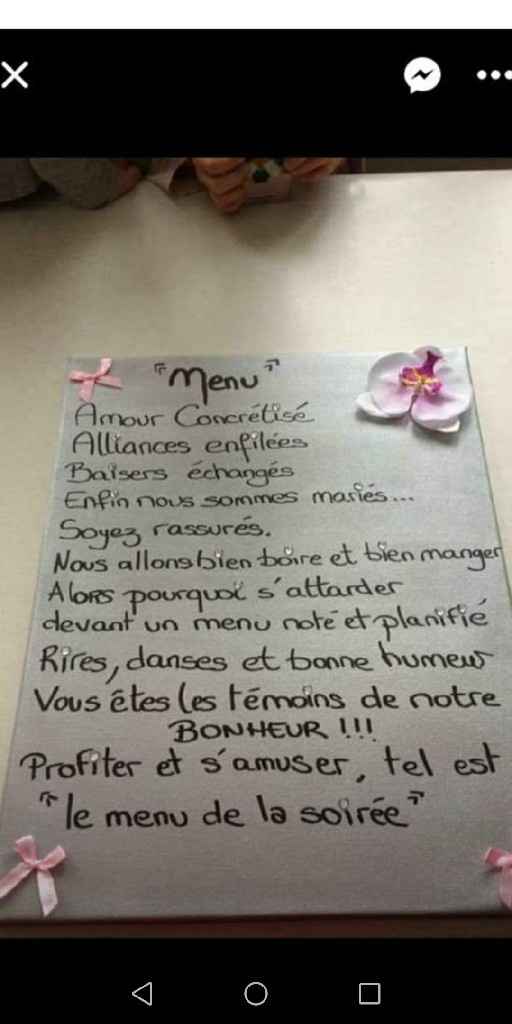 "Menu"
Amour Concrétisé
Alliances enfilées
Baisers échangés
Enfin nous sommes mariés...
Soyez rassurés.
Nous allons bien boire et bien manger
Alors pourquoi s'attarder
devant un menu noté et planifié
Rires, danses et bonne humeur
Vous êtes les témoins de notre
BONHEUR !!!
Profiter et s'amuser, tel est
"le menu de la soirée"